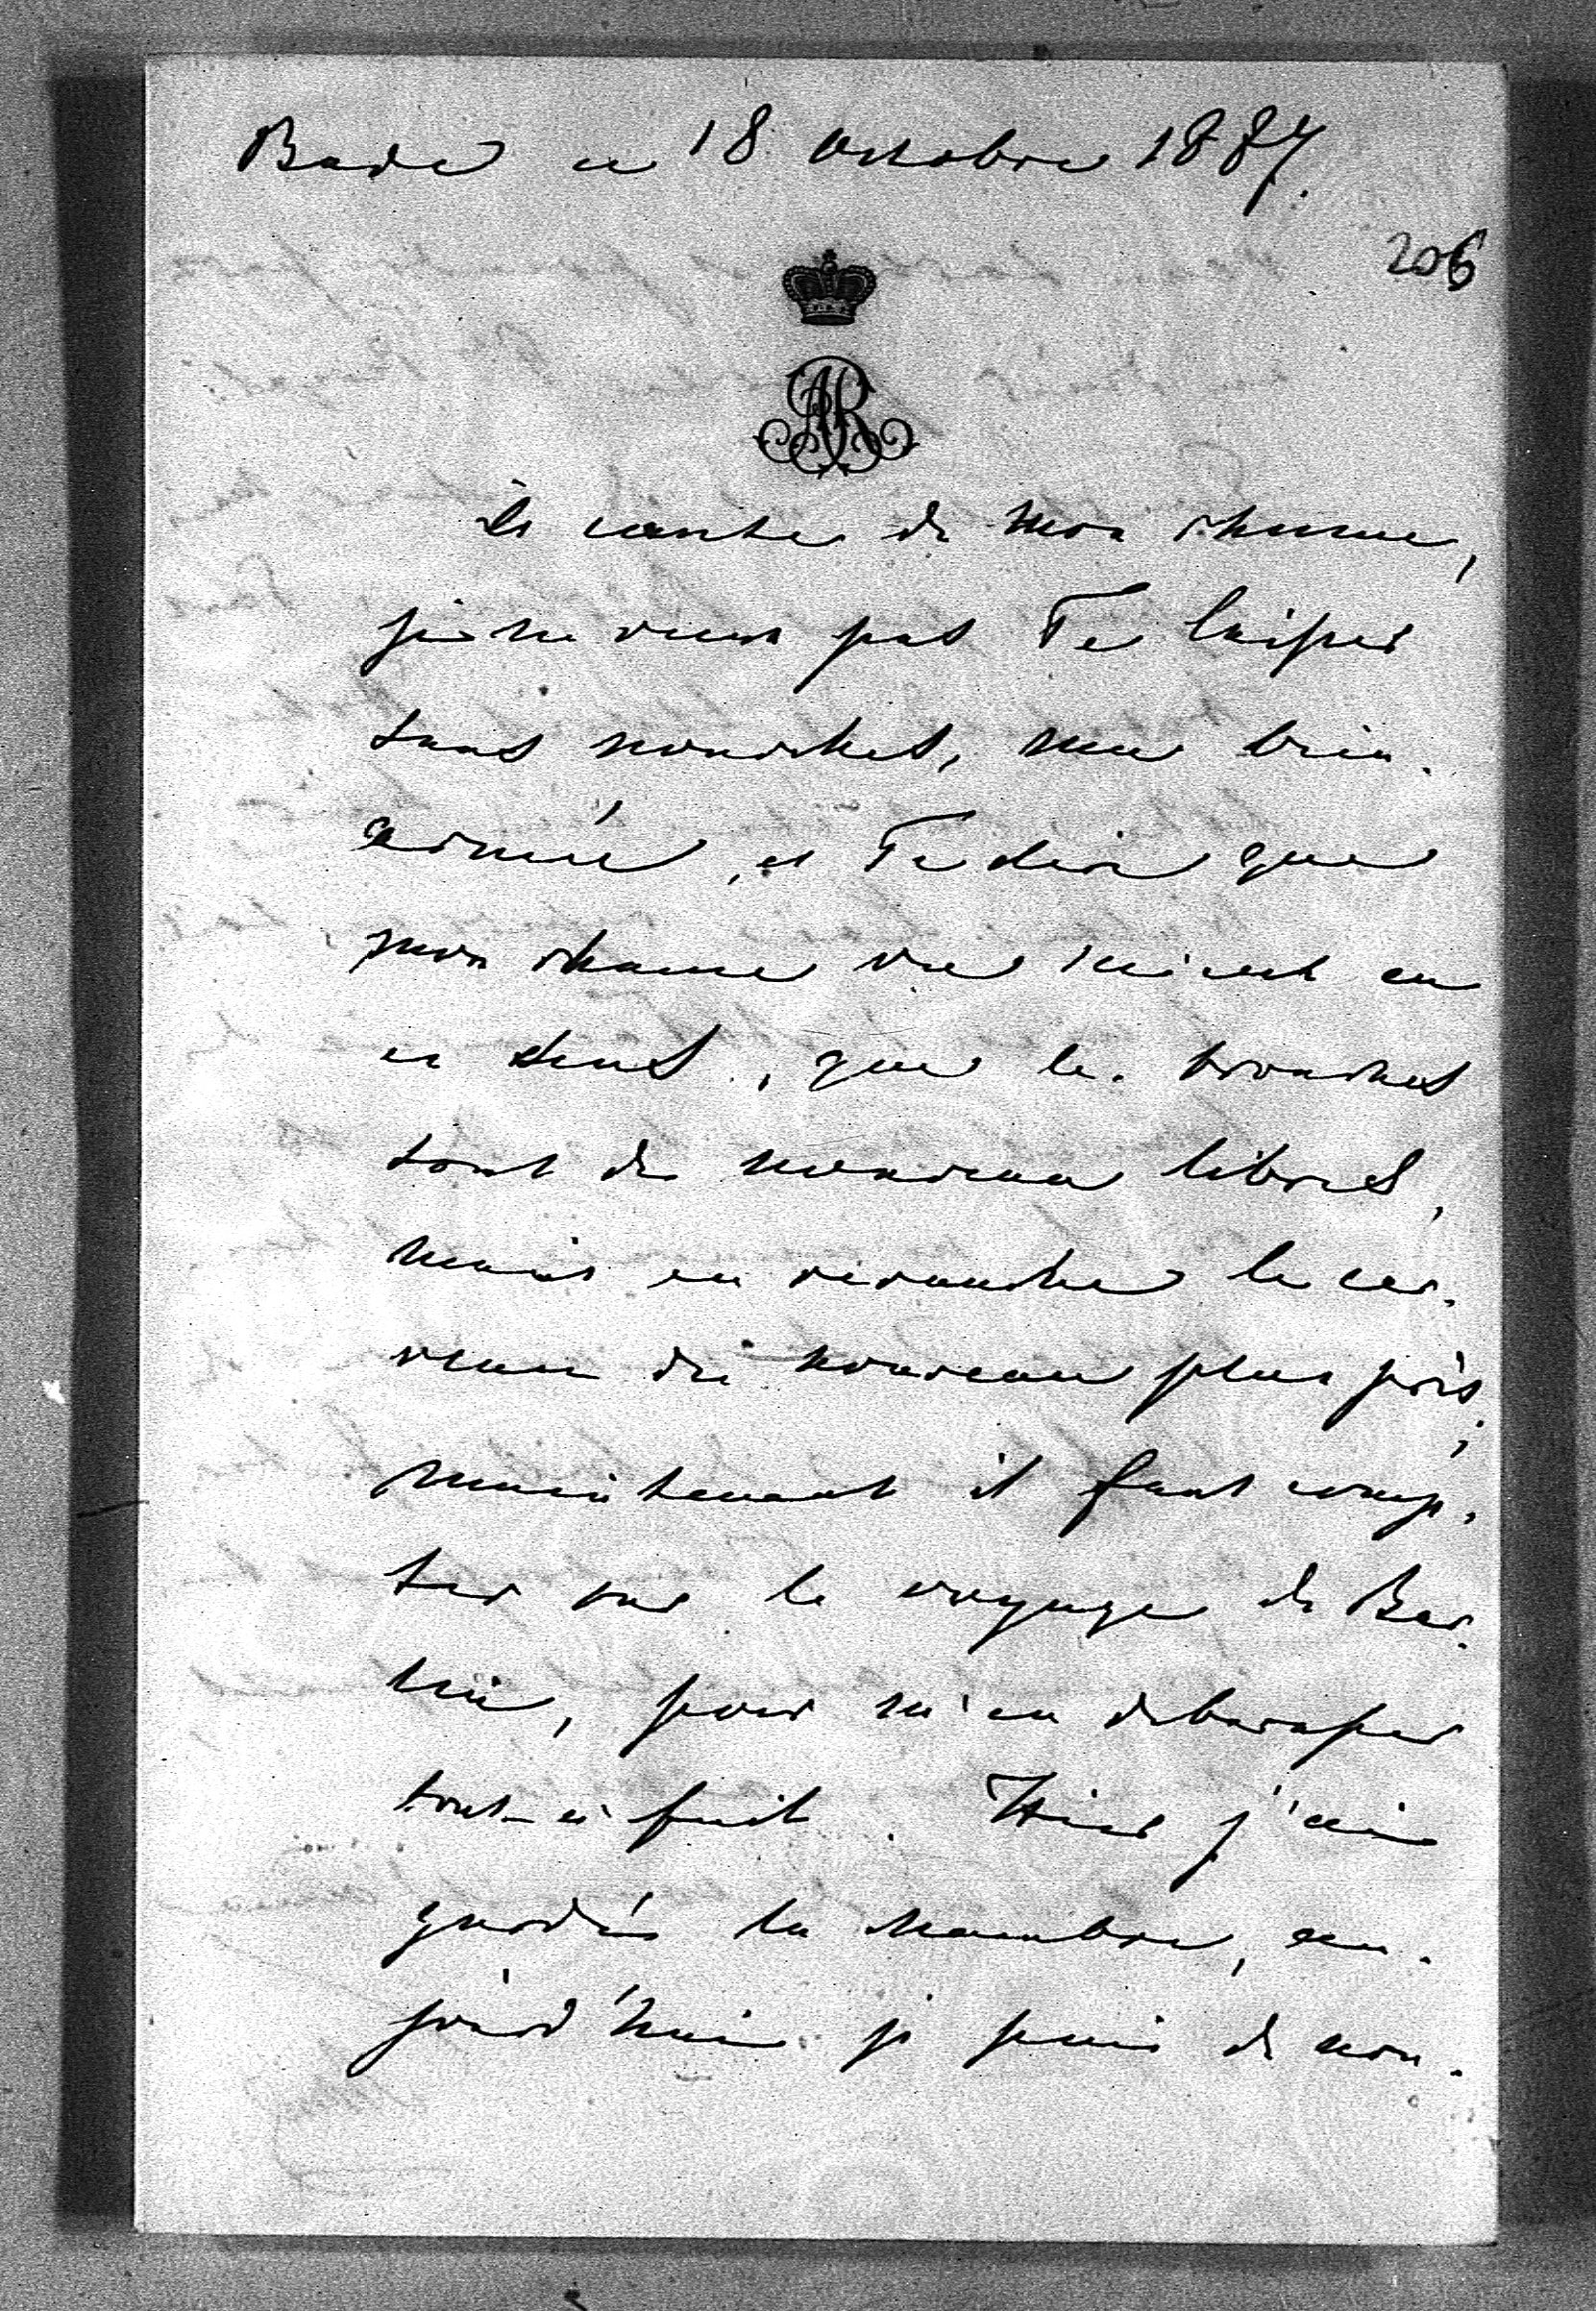 Bade ce 18 octobre 1887.
206
AR
A cause de mon rhume,
je ne veux pas Te laisser
sans nouvelles, ma bien-
aimée, et Te dire que
mon rhume va mieux en
ce sens, que les bronches
sont de nouveau libres,
mais en revanche le cer-
veau de nouveau plus pris;
maintenant il faut comp-
ter sur le voyage de Ber-
lin, pour m'en debarasser
tout-à-fait. Hier j'ai
gardé la chambre, au-
jourd'hui je puis de nou-